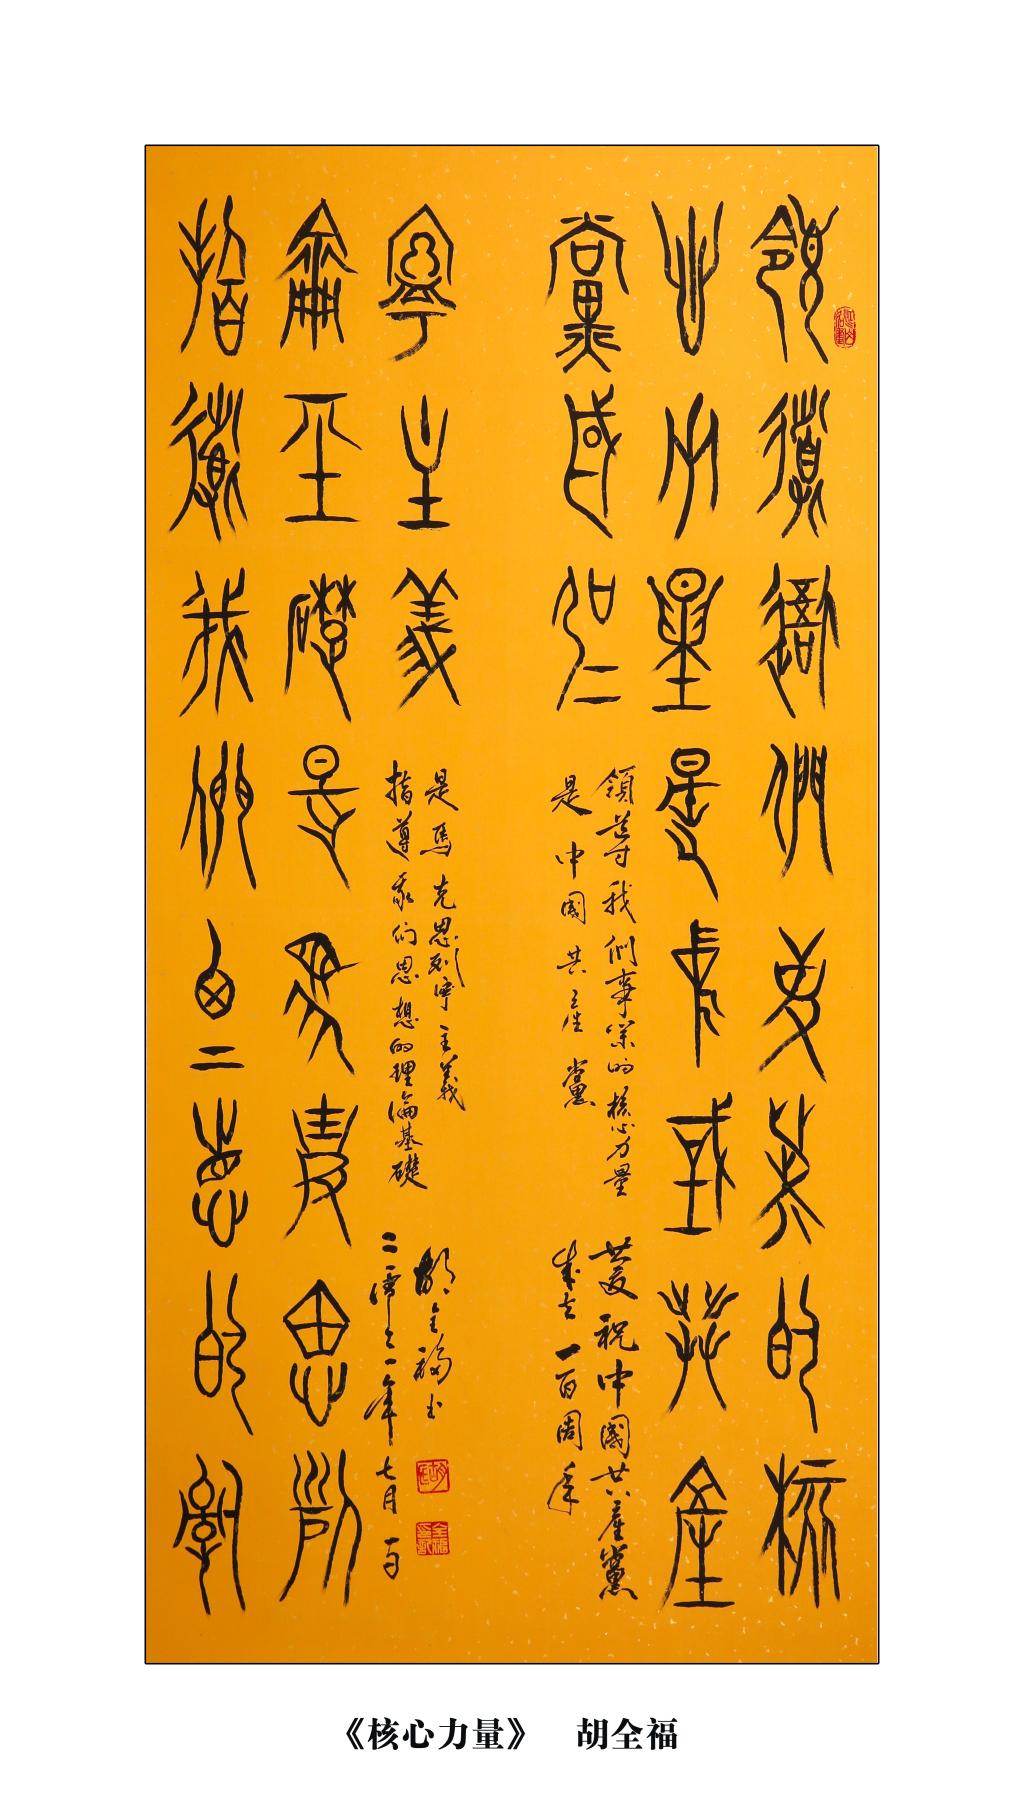 領導我們事業的核
心力量是中國共產
黨
領導我們事業的核心力量
是中國共產黨
慶祝中國共產黨
成立一百周年
指導我們思想的理
論基礎是馬克思列
寧主義
指導我們思想的理論基礎
是馬克思列寧主義
胡全福書
二零二一年七月一日
《核心力量》 胡全福